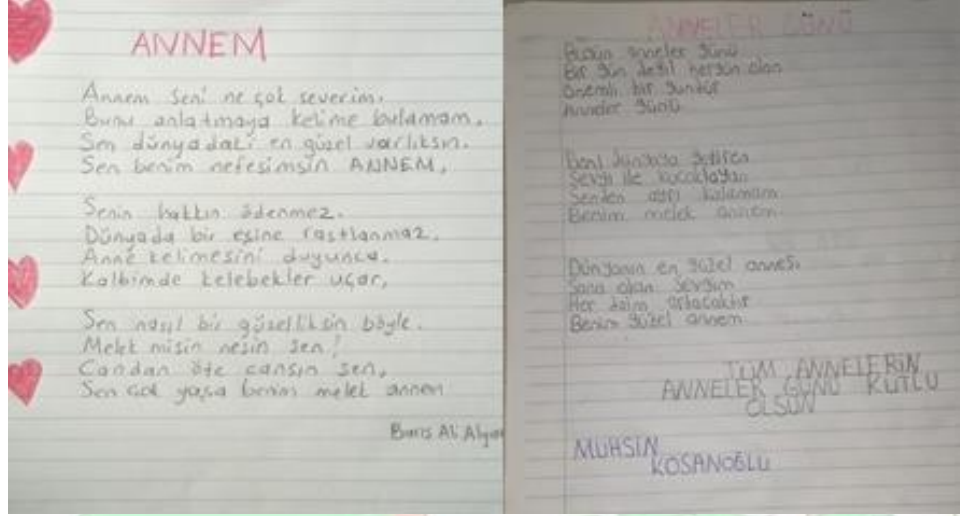 ANNEM
Annem seni ne çok severim.
Bunu anlatmaya kelime bulamam.
Sen dünyadaki en güzel varlıksın.
Sen benim nefesimsin ANNEM.
Senin hakkın ödenmez.
Dünyada bir eşine rastlanmaz.
Anne kelimesini duyunca.
Kalbimde kelebekler uçar.
Sen nasıl bir güzelliksin böyle.
Melek misin nesin sen!
Candan öte cansın sen.
Sen çok yaşa benim melek annem
Barış Ali
ANNELER GÜNÜ
Bugün anneler günü
Bir gün değil hergün olan
Önemli bir gündür
Anneler günü
Beni dünyaya getiren
Sevgi ile kucaklayan
Senden ayrı kalamam
Benim melek annem
Dünyanın en güzel annesi
Sana olan sevgim
Her daim artacaktır
Benim güzel annem
TÜM ANNELERİN
ANNELER GÜNÜ KUTLU
OLSUN
MUHSİN
KOSANOĞLU